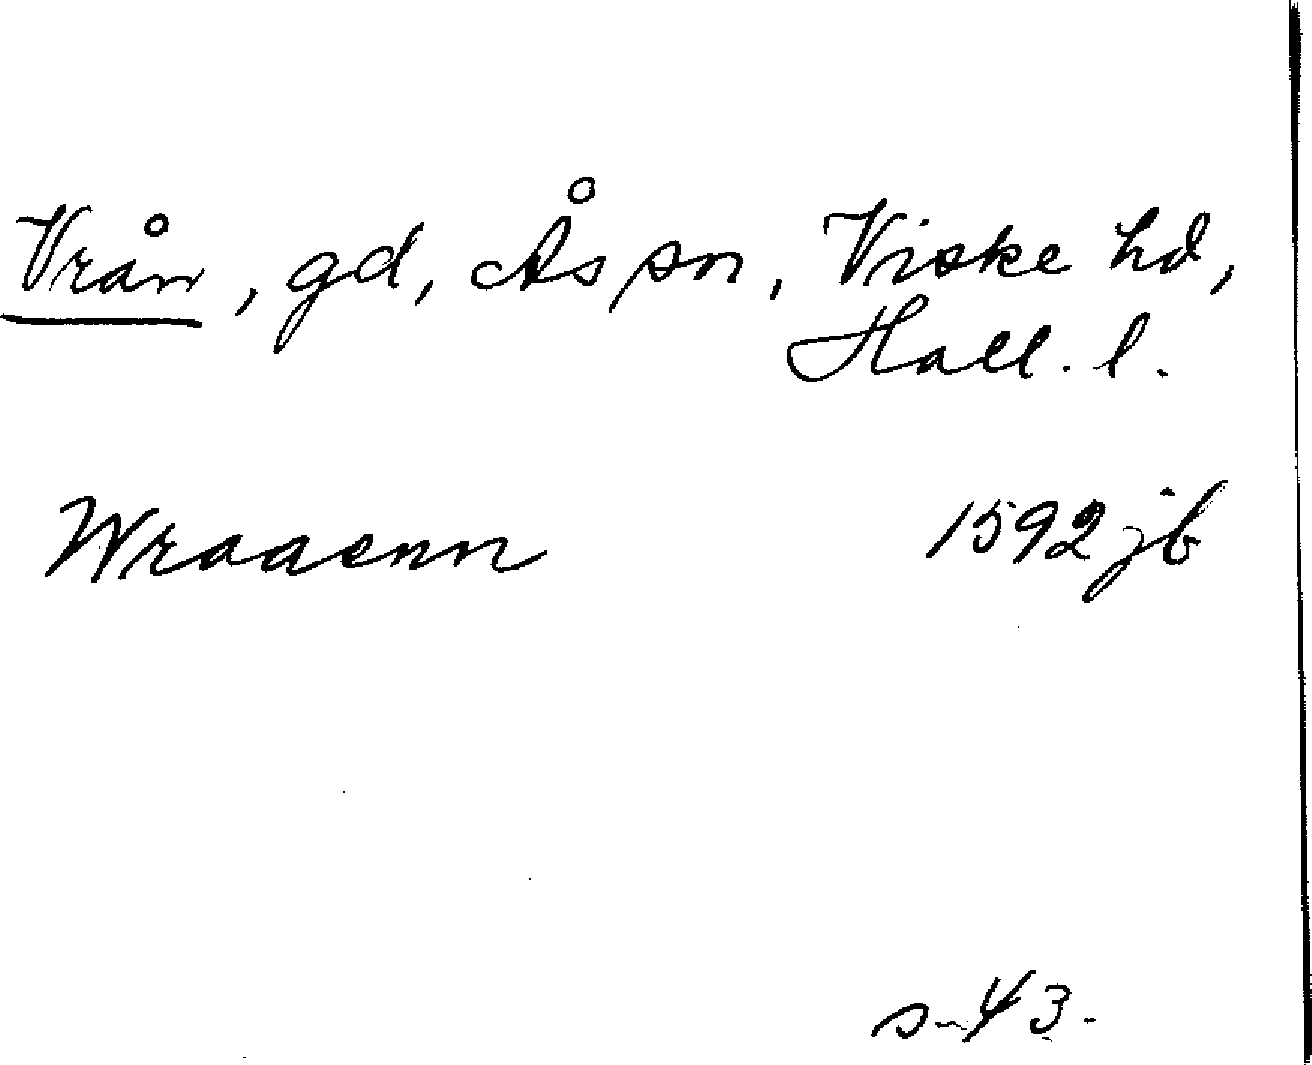 Vrån, gd, Ås sn, Viske hd,
Hall. l.
Wraaenn 1592 jb
s. 43.